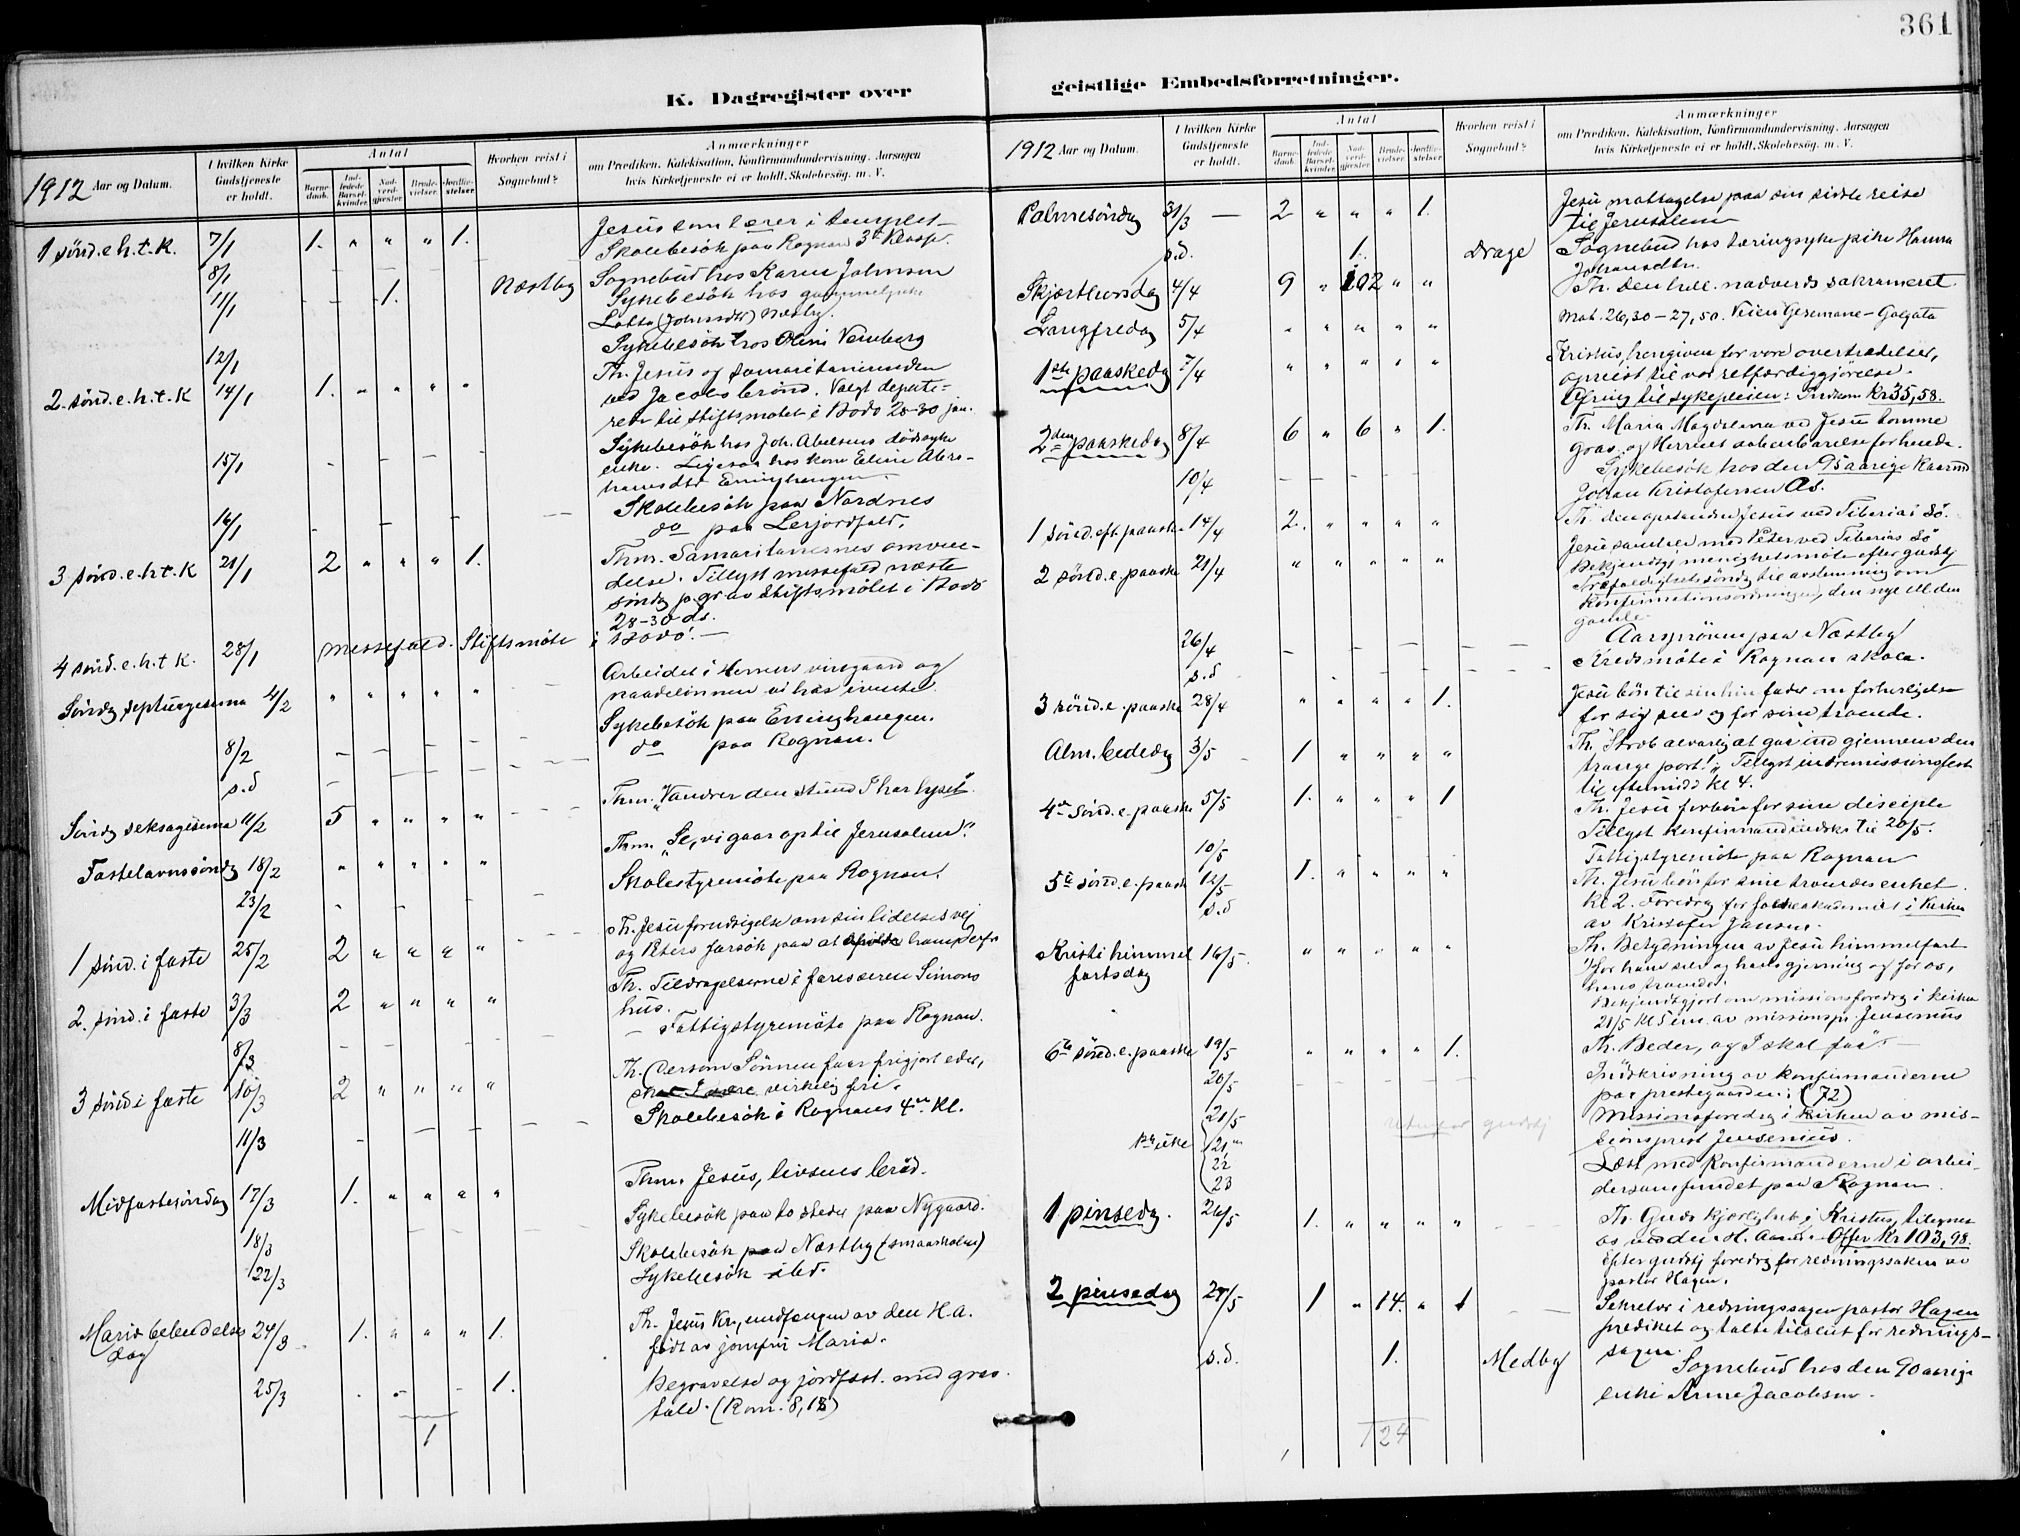 361
K. Dagregister over
geistlige Embedsforretninger.
1912 Aar og Datum.
I hvilken Kirke Gudstjeneste er holdt.
Antal
Barne-daab.
Ind-ledede Barsel-kvinder.
Nad-verd-gjæster.
Brude-vielser.
Jordfæ-stelser.
Hvorhen reist i Sognebud?
Anmærkninger
om Prædiken, Katekisation, Konfirmandundervisning, Aarsagen
hvis Kirketjeneste ei er holdt, Skolebesøg, m. V.
1 sönd. e. h. t. k. 7/1 1. " " " 1. Jesus som lærer i templet
Skolebesök paa Rognan 3die Klasse.
8/1 1. Næstby Sognebud hos Karen Johnsen
11/1 Sykebesök hos
Lotta (Johnsdtr) Næstby.
12/1 Sykebesök hos Olini
2. sönd. e. h. t. k 14/1 1. " " " " Th. Jesus og samaritanerinden
ved Jacobs brönd. Valgt depute-
rer til stiftsmötet i Bodö 28-30 jan.
15/1 Sykebesök hos Joh. Abelsens dödssyke
enke. Ligesaa hos kone Eline Abra-
hamsdtr
16/1 Skolebesök paa Nordnes
do paa Lerjordfald.
3 sönd. e. h. t. k 21/1 2 " " " 1. Thm. Samaritanernes omven-
delse. Tillyst messefald næste
söndg p. gr. av stiftsmötet i Bodö
28-30 ds.
4 sönd. e. h. t k. 28/1 Messefald. Stiftsmöte i Bodö. —
Söndg septuagesima 4/2 " " " " " Arbeidet i Herrens vingaard og
naadelönnen vi has ivente.
8/2 Sykebesök paa
s.d do paa Rognan.
Söndg seksagesima 11/2 5 " " " " Thm. "Vandrer den stund I har lyset".
Fastelavnssöndg 18/2 " " " " " Thm. "Se, vi gaar op til Jerusalem".
23/2 Skolestyremöte paa Rognan.
1 sönd. i faste 25/2 2 " " " " Th. Jesu forudsigelse om sin lidelses vej
og Peters forsök paa at holde ham derfra
2. sönd. i faste 3/3 2 " " " " Th. Tildragelserne i fariseeren Simons
hus.
8/3 — Fattigstyremöte paa Rognan.
3 sönd i faste 10/3 2 " " " " Th. Dersom Sönnen faar frigjort eder,
skal I være virkelig fri.
11/3 Skolebesök i Rognans 4de Kl.
Midfastesöndag 17/3 1. " " " " Thm. Jesus, livsens bröd.
18/3 Sykebesök paa to steder paa Nygaard.
22/3 Skolebesök paa Næstby (smaaskolen)
Sykebesök ibd.
Mariæ bebudelses dag 24/3 1. " " " 1. Th. Jesus Kr., undfangen av den H. A.
födt av jomfru Maria.
25/3 1. Begravelse og jordfæst. med grav-
tale. (Rom. 8, 18)
1
1912 Aar og Datum.
I hvilken Kirke Gudstjeneste er holdt.
Antal
Barne-daab.
Ind-ledede Barsel-kvinder.
Nad-verd-gjæster.
Brude-vielser.
Jordfæ-stelser.
Hvorhen reist i Sognebud?
Anmærkninger
om Prædiken, Katekisation, Konfirmandundervisning, Aarsagen
hvis Kirketjeneste ei er holdt, Skolebesøg, m. V.
Palmesöndag 31/3 — 2 " " " 1. Jesu mottagelse paa sin sidste reise
til Jerusalem
s.d. 1. Drage Sognebud hos tæringssyke pike Hanna
Johansdtr.
Skjærthorsdag 4/4 9 " 102 " " Th. Den hell. nadverds sakramenet.
Langfredag 5/4 " " " " " Mat. 26,30 - 27,50. Veien Gesemane - Golgata
1ste paaskedg 7/4 " " " " " Kristus hengiven for vore overtrædelser,
opreist til vor retfærdiggjörelse.
Ofring til sykepleien: Indkom Kr 35,58.
2den paaskedag 8/4 6 " 6 " 1. Th. Maria Magdalena ved Jesu tomme
grav og Herrens aabenbarelse for hende.
10/4 Sykebesök hos den 95 aarige
Johan Kristofersen Ås.
1 sönd. eft. paaske 14/4 2. " " " " Th. Den opstandne Jesus ved Tiberias Sö.
2 sönd. e. paaske 21/4 " " " " " Jesu samtale med Peter ved Tiberias Sö
Bekjendtgj. menighetsmöte efter gudstj
Trefoldighetssöndg til avstemning om
Konfirmationsordningen, den nye ell den
gamle.
26/4 Aarspröven paa Næstby
s.d Kredsmöte i Rognan skole.
3 sönd. e. paaske 28/4 " " " " 1. Jesu bön til sin him. fader om forherligelse
for sig selv og for sine troende.
Alm. bededag 3/5 1 " " " " Th. Stræb alvorlig at gaa ind gjennem den
trange port! Tillyst indremissionsfest
til eftermidd kl 4.
4de sönd. e. paaske 5/5 1. " " " 1 Th. Jesu forbön for sine disciple
Tillyst Konfirmandindskr. til 20/5.
10/5 Fattigstyremöte paa Rognan
5te sönd. e. paaske 12/5 1. " " " " Th. Jesu bön for sine troendes enhet.
s.d Kl 2. Foredrag for folkeakademiet i Kirken
av Kristofer Jansen.
Kristi himmel fartsdag 16/5. " " " " " Th. Betydningen av Jesu himmelfart
for ham selv og hans gjerning og for os,
hans troende.
Bekjendtgjort om missionsforedrag i kirken
21/5 kl 5 em. av missionspr. Jensenius
6te sönd. e. paaske 19/5 " " " " 1. Th. Beder, og I skal faa! —
20/5 Indskrivning av konfirmanderne
paa prestegaarden. (72)
21/5 Utenfor gudstj Missionsforedrag i Kirken av mis-
sionsprest Jensenius.
1ste uke 21de 22 23 Læst med Konfirmanderne i arbei-
dersamfundet paa Rognan.
1 pinsedg. 26/5 1. " " " " Th. Guds kjærlighet i Kristus, tilegnes
os ved den H. Aand. Offer Kr 103,98.
Efter gudstj foredrag for redningssaken av
pastor Hagen.
2 pinsedag 27/5 1 " 14. " 1 Sekretær i redningssagen pastor Hagen
prediket og talte tilslut for rednings-
sagen.
s.d. 1. Medby Sognebud hos den 90 aarige
enke Anne Jacobsen.
124